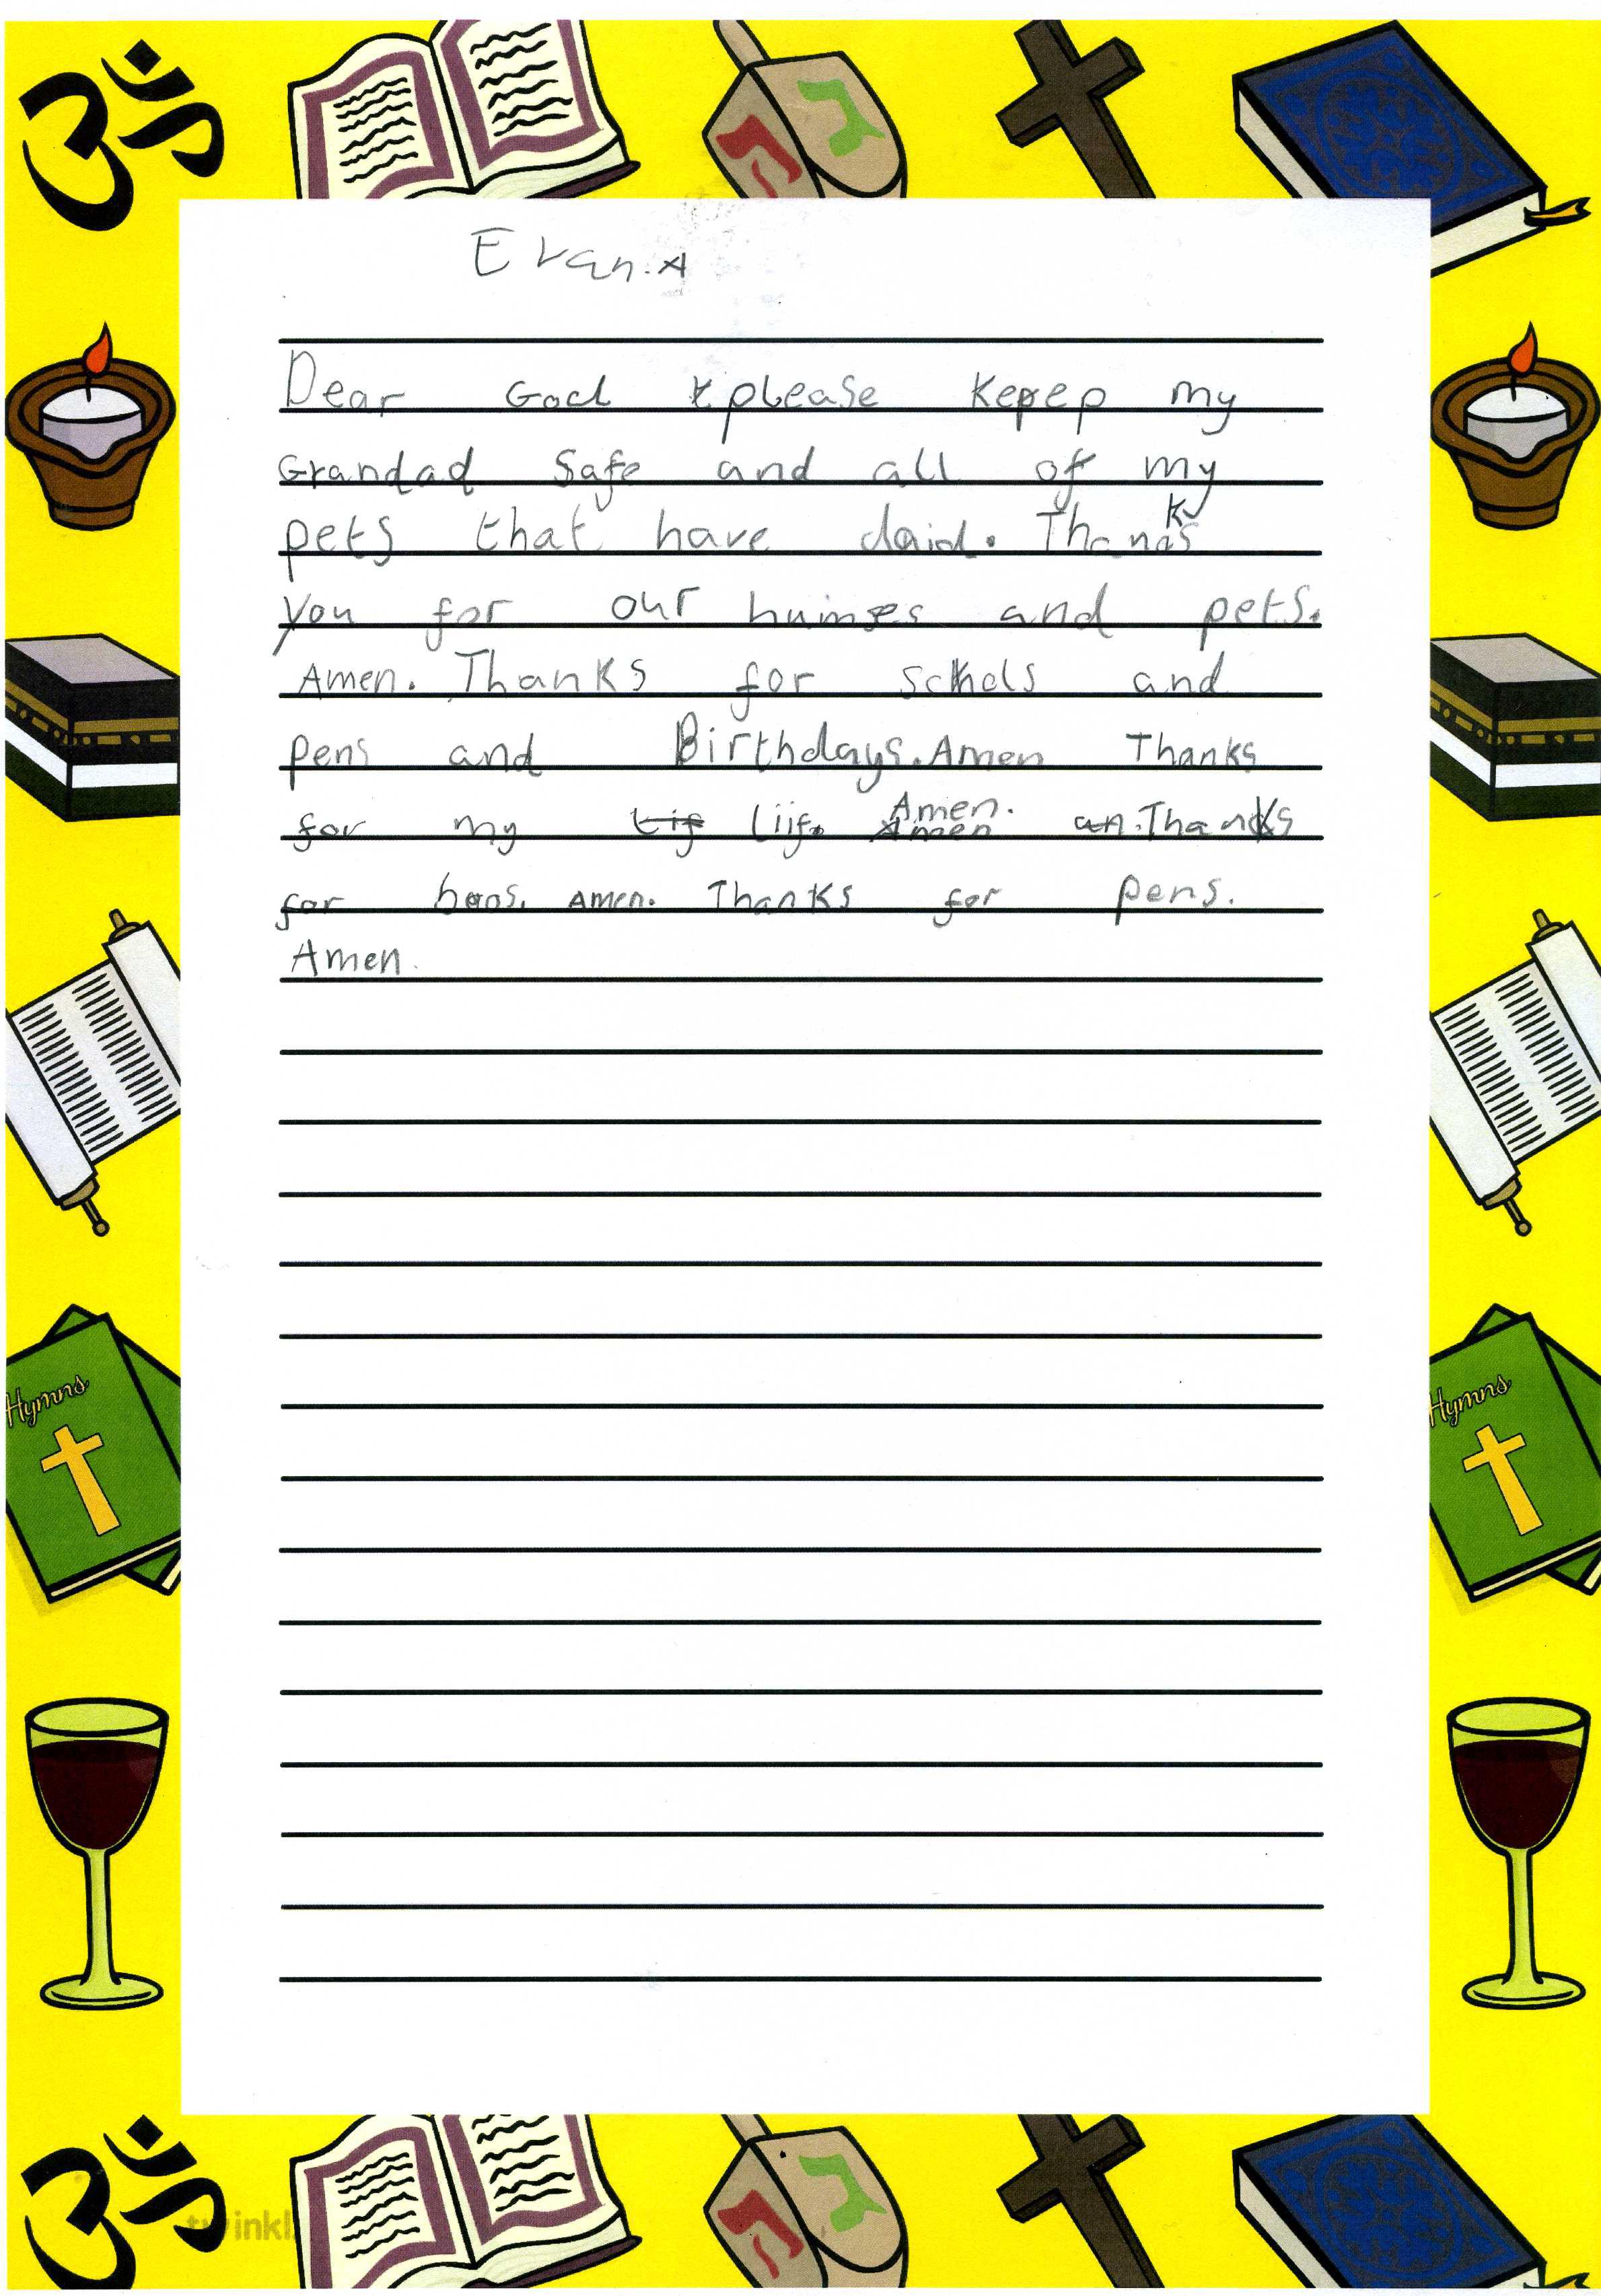 Evan.A
Dear God please keep my
Grandad Safe and all of my
pets that have daid. Thank
you for our humses and pets.
Amen. Thanks for schols and
pens and Birthdays. Amen Thanks
for my liif. Amen. Thanks
for boos. Amen. Thanks for pens.
Amen.
Hymns
Hymns
twinkl